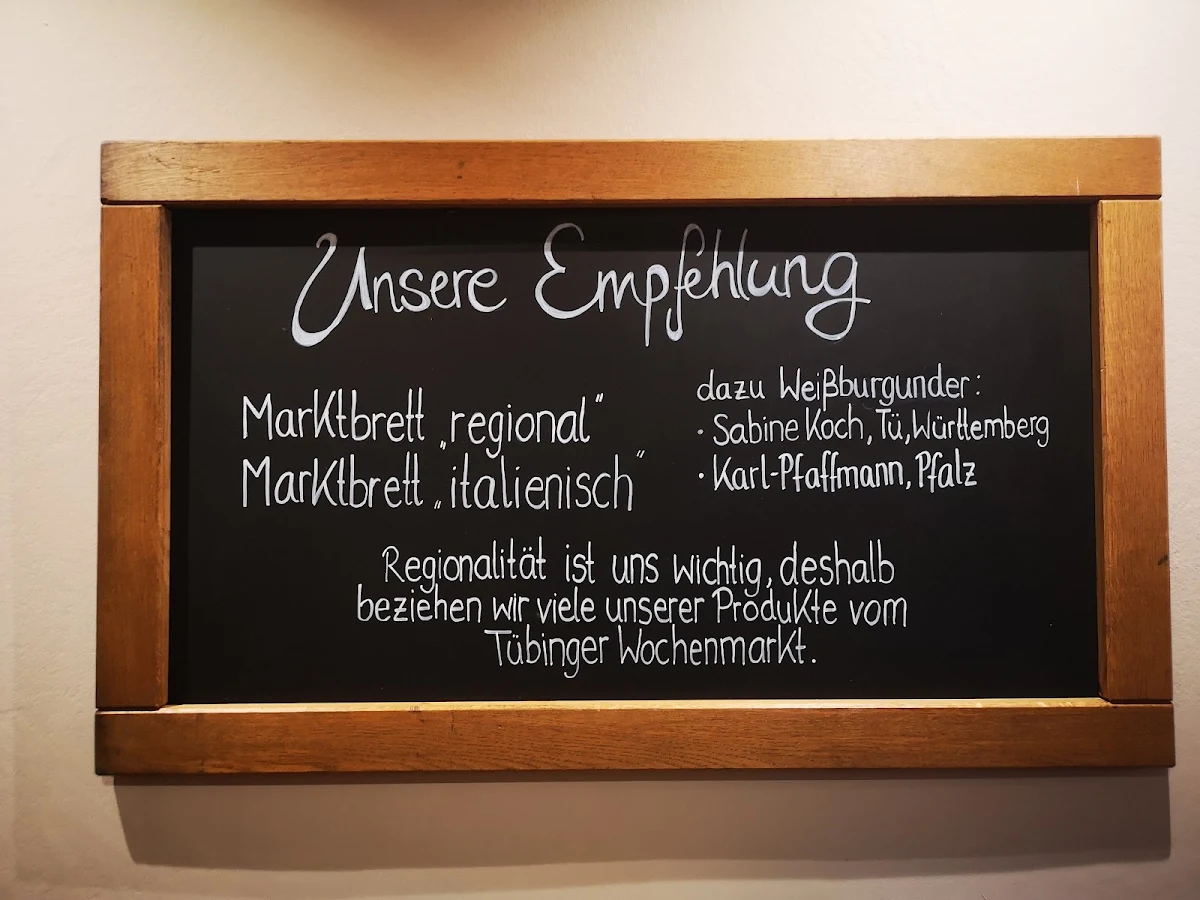 Unsere Empfehlung
Marktbrett „regional“
Marktbrett „italienisch“
dazu Weißburgunder:
· Sabine Koch, Tü, Württemberg
· Karl-Pfaffmann, Pfalz
Regionalität ist uns wichtig, deshalb
beziehen wir viele unserer Produkte vom
Tübinger Wochenmarkt.